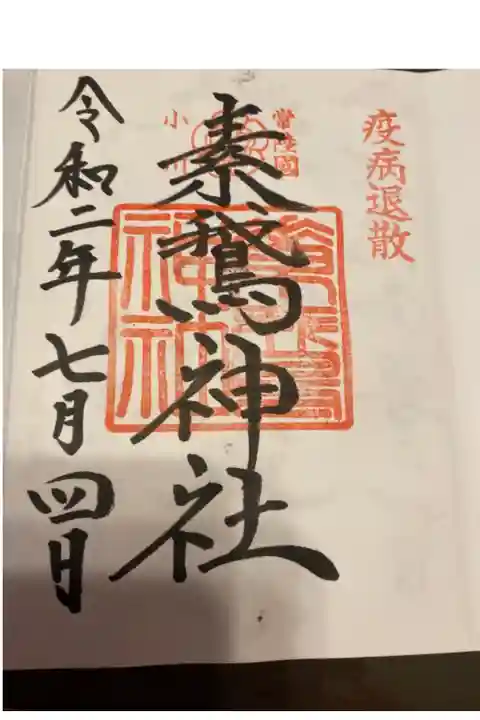 疫病退散
常陸國
小川
素鵞神社
素鵞
神社
令和二年七月四日